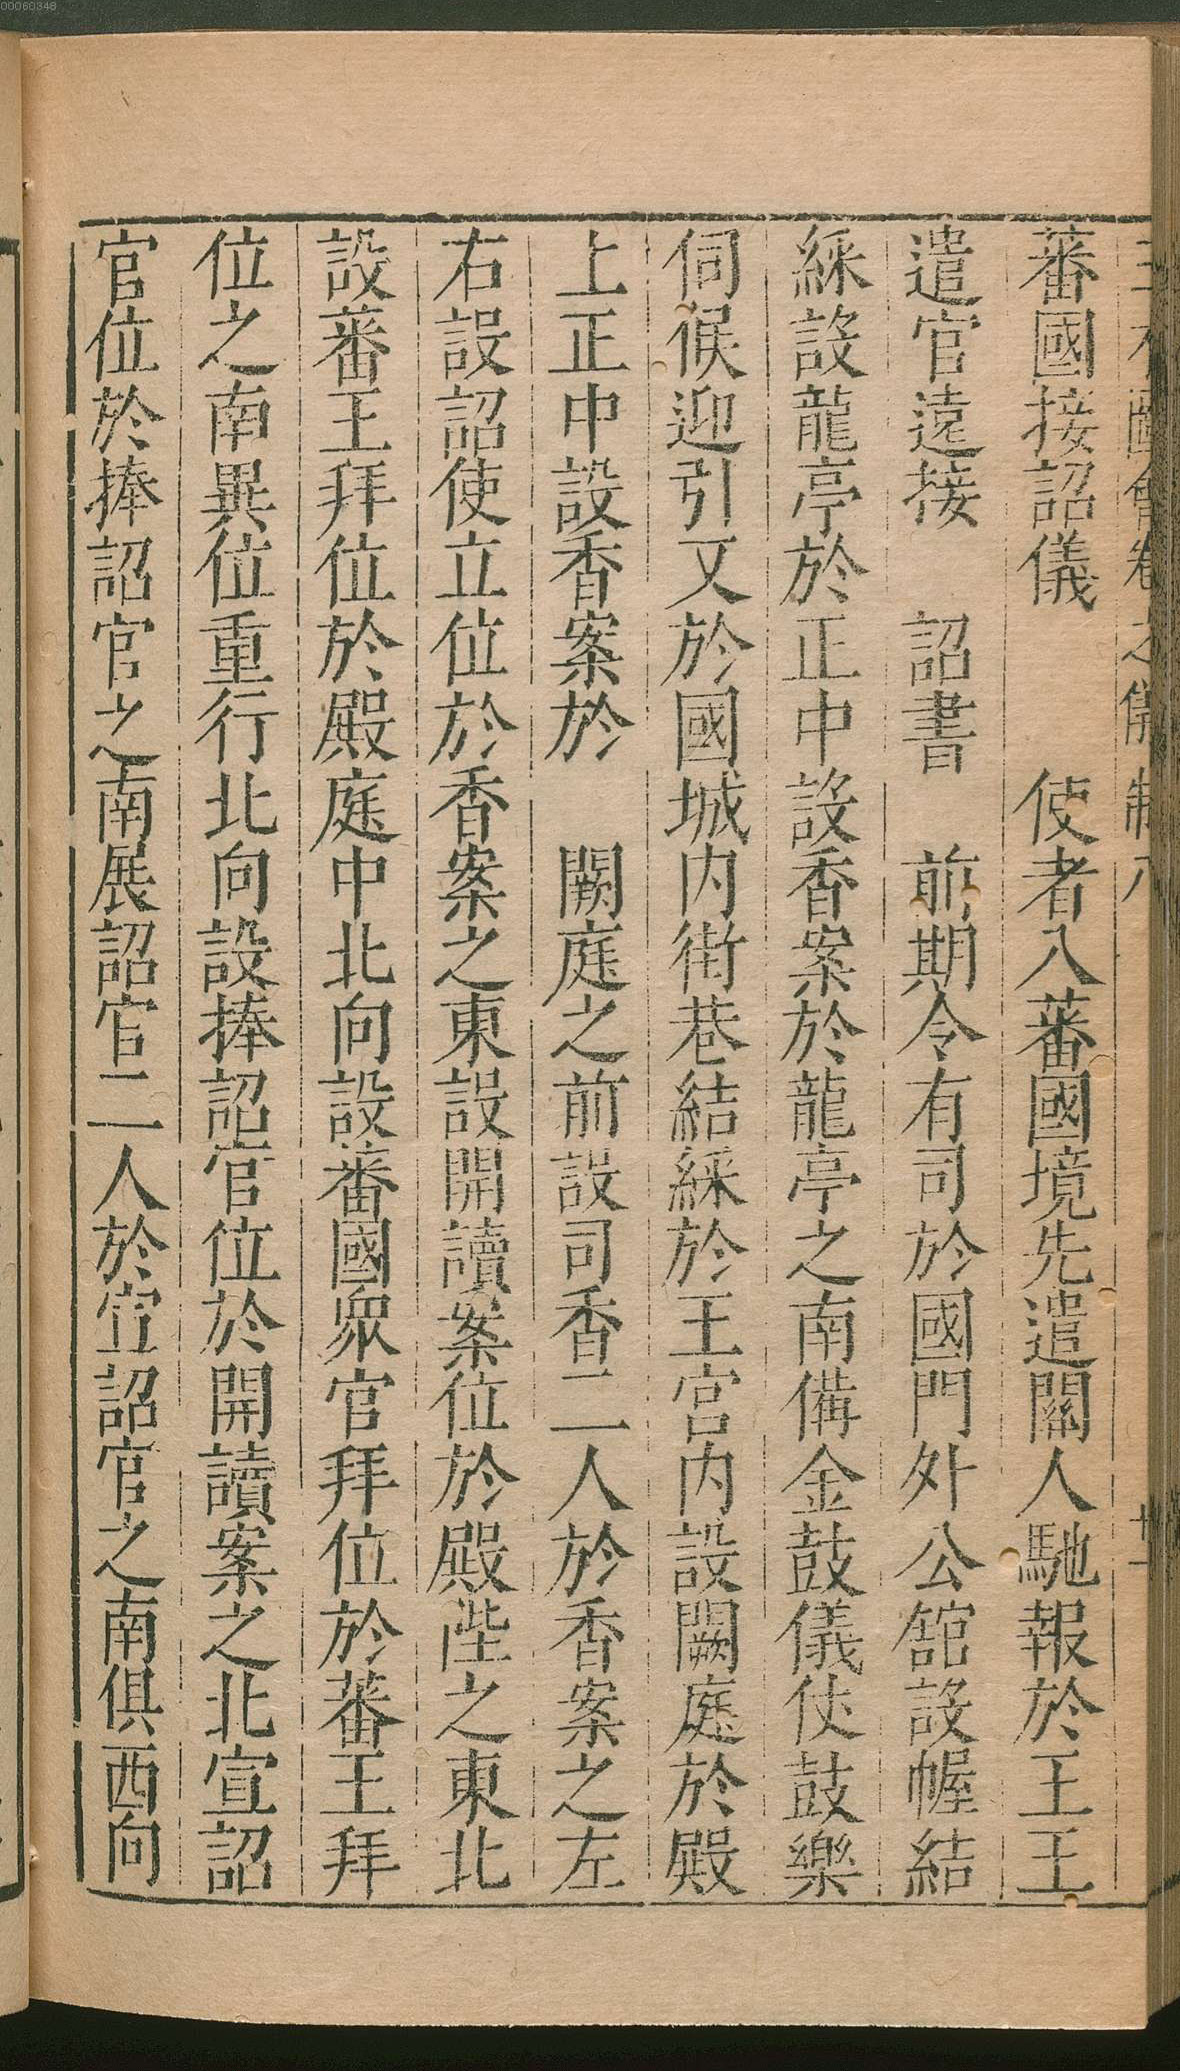 00060348
蕃國接詔儀　使者入蕃國境先遣關人馳報於王王
遣官遠接　詔書　前期令有司於國門外公舘設幄結
綵設龍亭於正中設香案於龍亭之南備金鼓儀仗鼓樂
伺候迎引又於國城内街巷結綵於王宮内設闕庭於殿
上正中設香案於　闕庭之前設司香二人於香案之左
右設詔使立位於香案之東設開讀案位於殿陛之東北
設蕃王拜位於殿庭中北向設蕃國衆官拜位於蕃王拜
位之南異位重行北向設捧詔官位於開讀案之北宣詔
官位於捧詔官之南展詔官二人於宣詔官之南俱西向